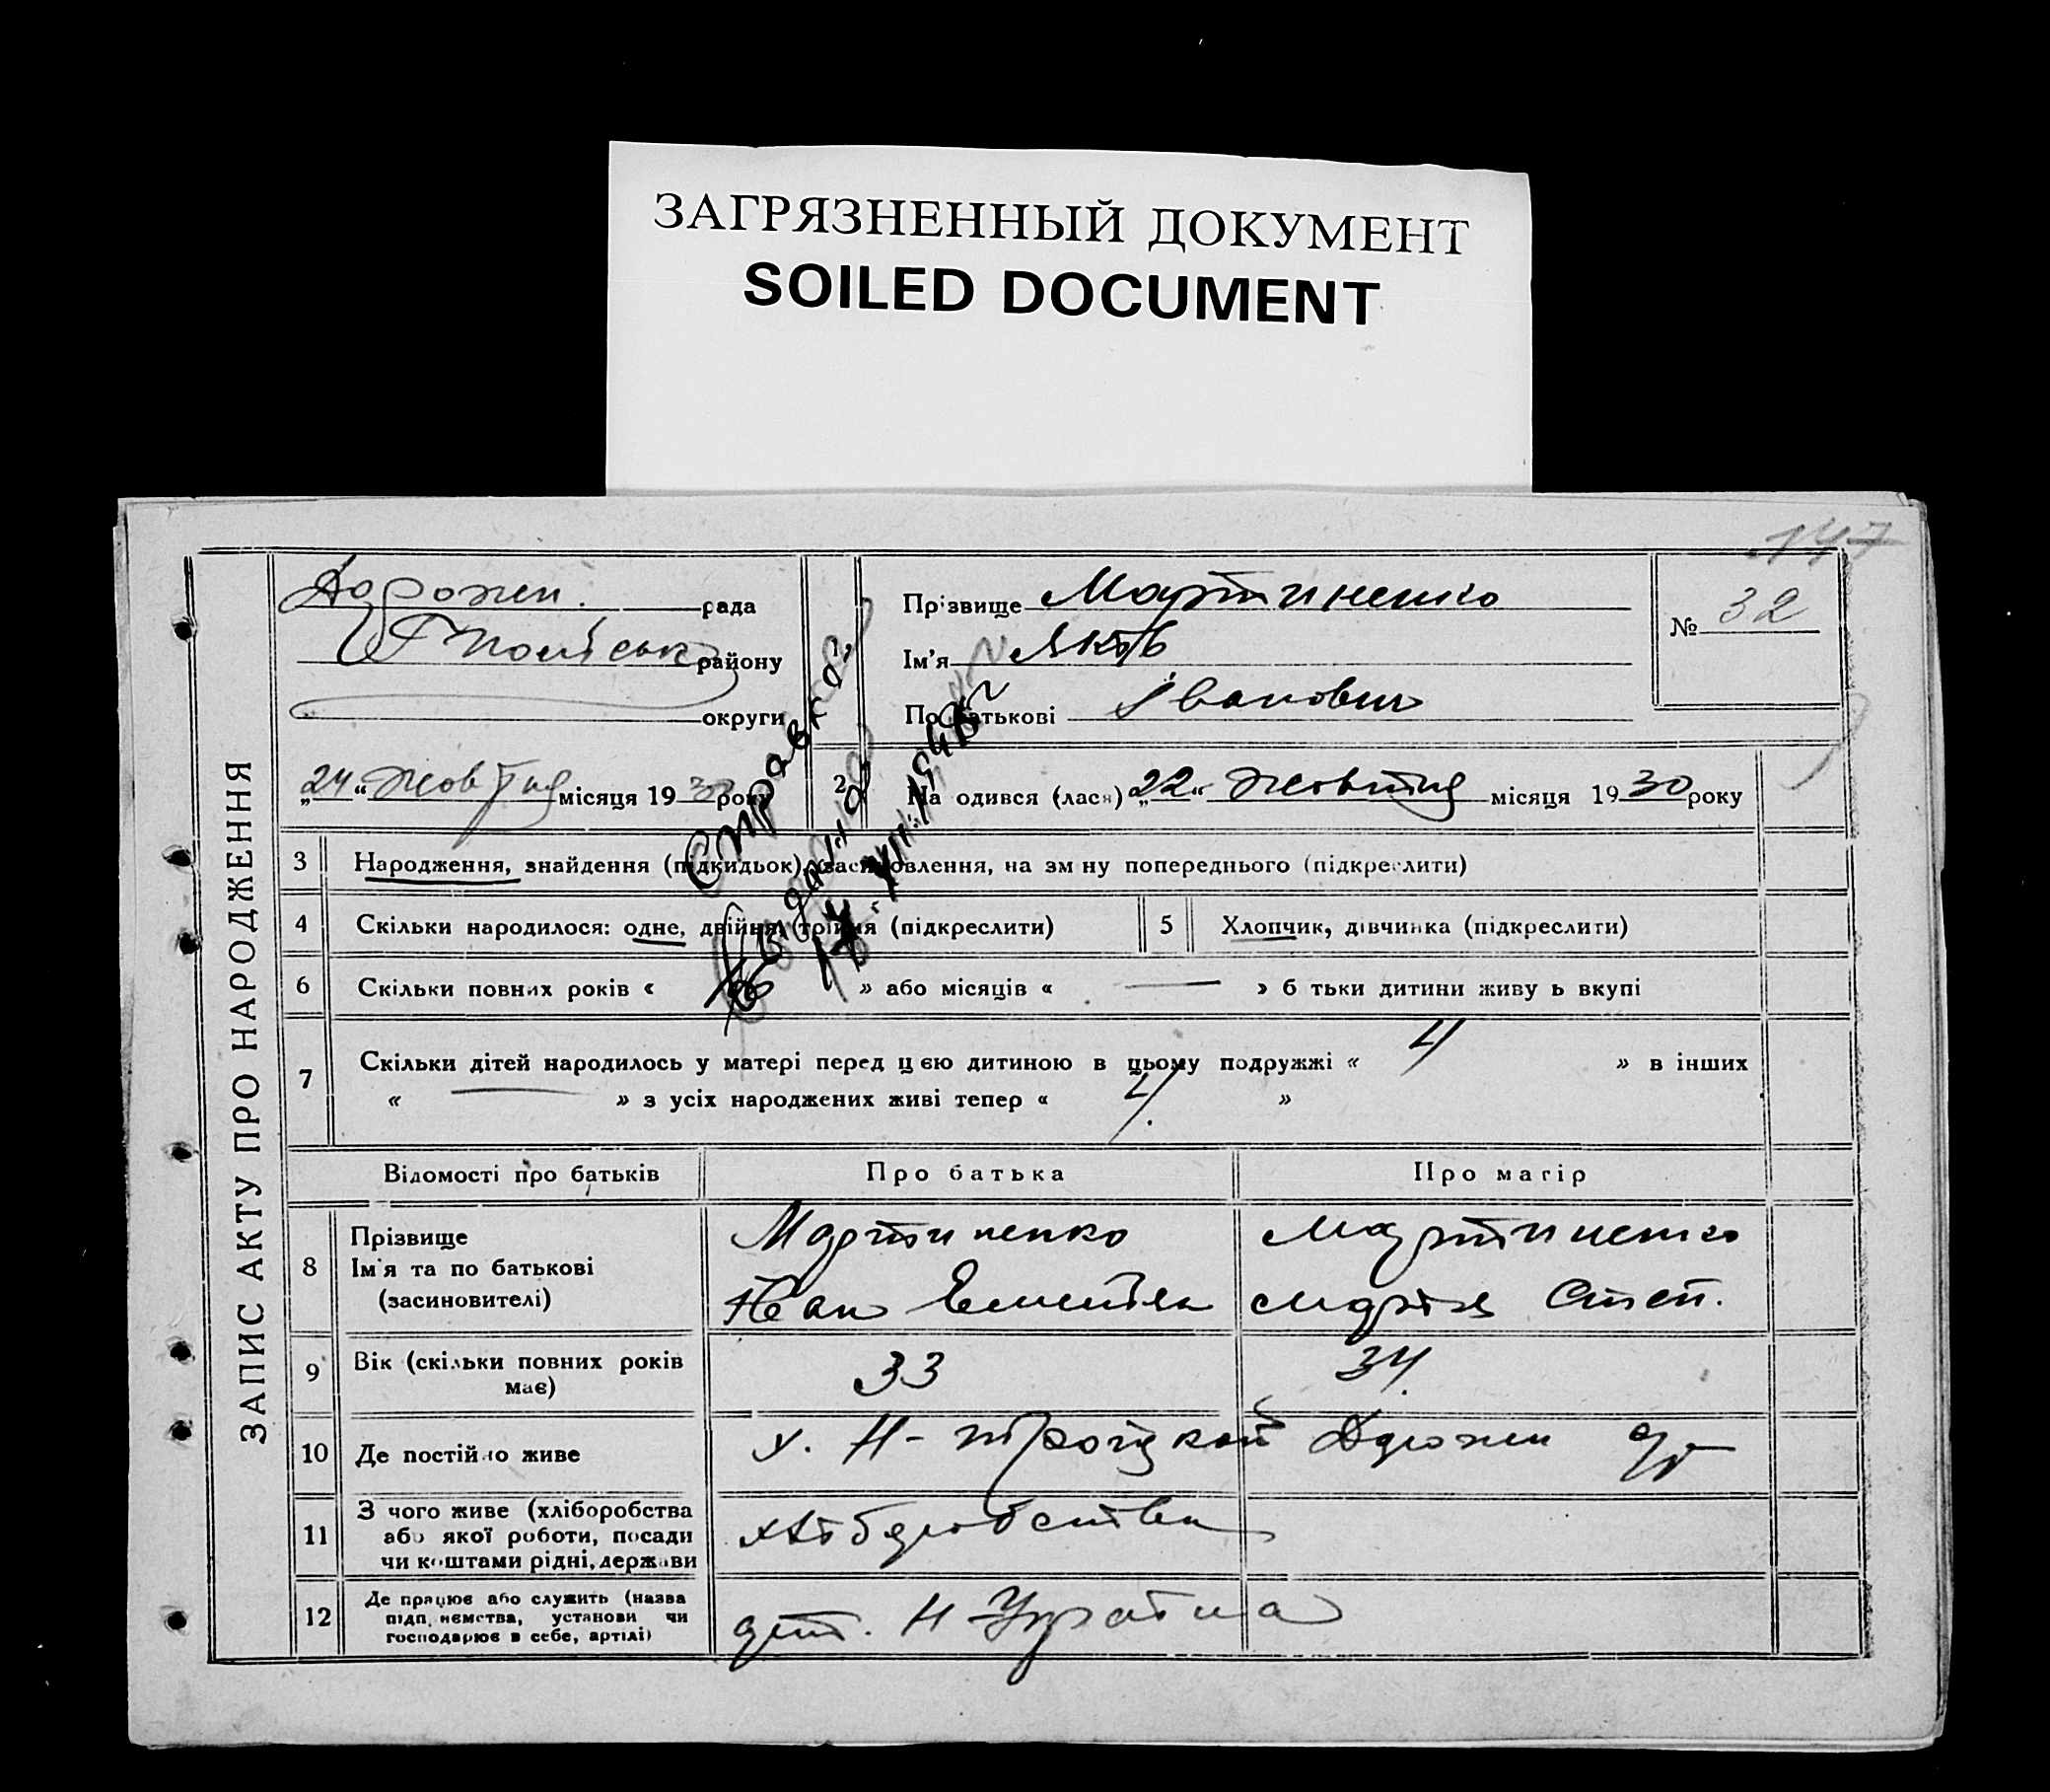 ЗАГРЯЗНЕННЫЙ ДОКУМЕНТ
SOILED DOCUMENT
147
ЗАПИС АКТУ ПРО НАРОДЖЕННЯ
рада
району
округи
„24“ Жовтня місяця 1930 року
Прізвище Мартиненко
Ім'я Яків
По батькові Іванович
№ 32
2 На одився (лася) „22“ Жовтня місяця 1930 року
Справка
Видана
3 Народження, знайдення (підкидьок), засиновлення, на зм ну попереднього (підкреслити)
4 Скільки народилося: одне, двійня, трійня (підкреслити)
5 Хлопчик, дівчинка (підкреслити)
6 Скільки повних років « » або місяців « — » б тьки дитини живу ь вкупі
7 Скільки дітей народилось у матері перед цією дитиною в цьому подружжі « 4 » в інших
« — » з усіх народжених живі тепер « 4. »
Відомості про батьків Про батька Про матір
8 Прізвище
Ім'я та по батькові
(засиновителі)
Мартиненко
Іван
Мартиненко
Марія Степ.
9 Вік (скільки повних років
має)
33
34.
10 Де постійно живе
х. Н-Троїцкий
11 З чого живе (хліборобства
або якої роботи, посади
чи коштами рідні, держави
хліборобства
12 Де працює або служить (назва
підп.иємства, установи чи
господарює в себе, артілі)
арт. Н Україна